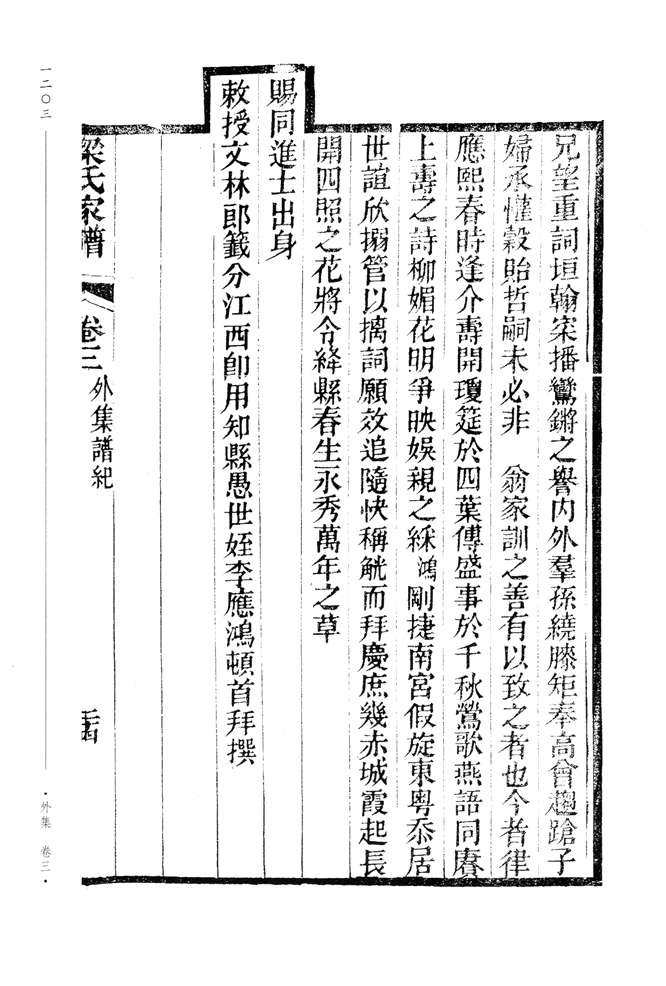 兄望重詞垣翰宷播鸞鏘之譽内外羣孫繞膝矩奉高曾趨蹌子
婦承懽穀貽哲嗣未必非　翁家訓之善有以致之者也今者律
應熙春時逢介壽開瓊筵於四葉傳盛事於千秋鶯歌燕語同賡
上壽之詩柳媚花明爭映娛親之綵鴻剛捷南宮假旋東粵忝居
世誼欣搦管以摛詞願效追隨快稱觥而拜慶庶幾赤城霞起長
開四照之花將令絳縣春生永秀萬年之草
賜同進士出身
敕授文林郎籤分江西卽用知縣愚世姪李應鴻頓首拜撰
梁氏家譜　卷三　外集譜紀
一二〇三
·外集　卷三·